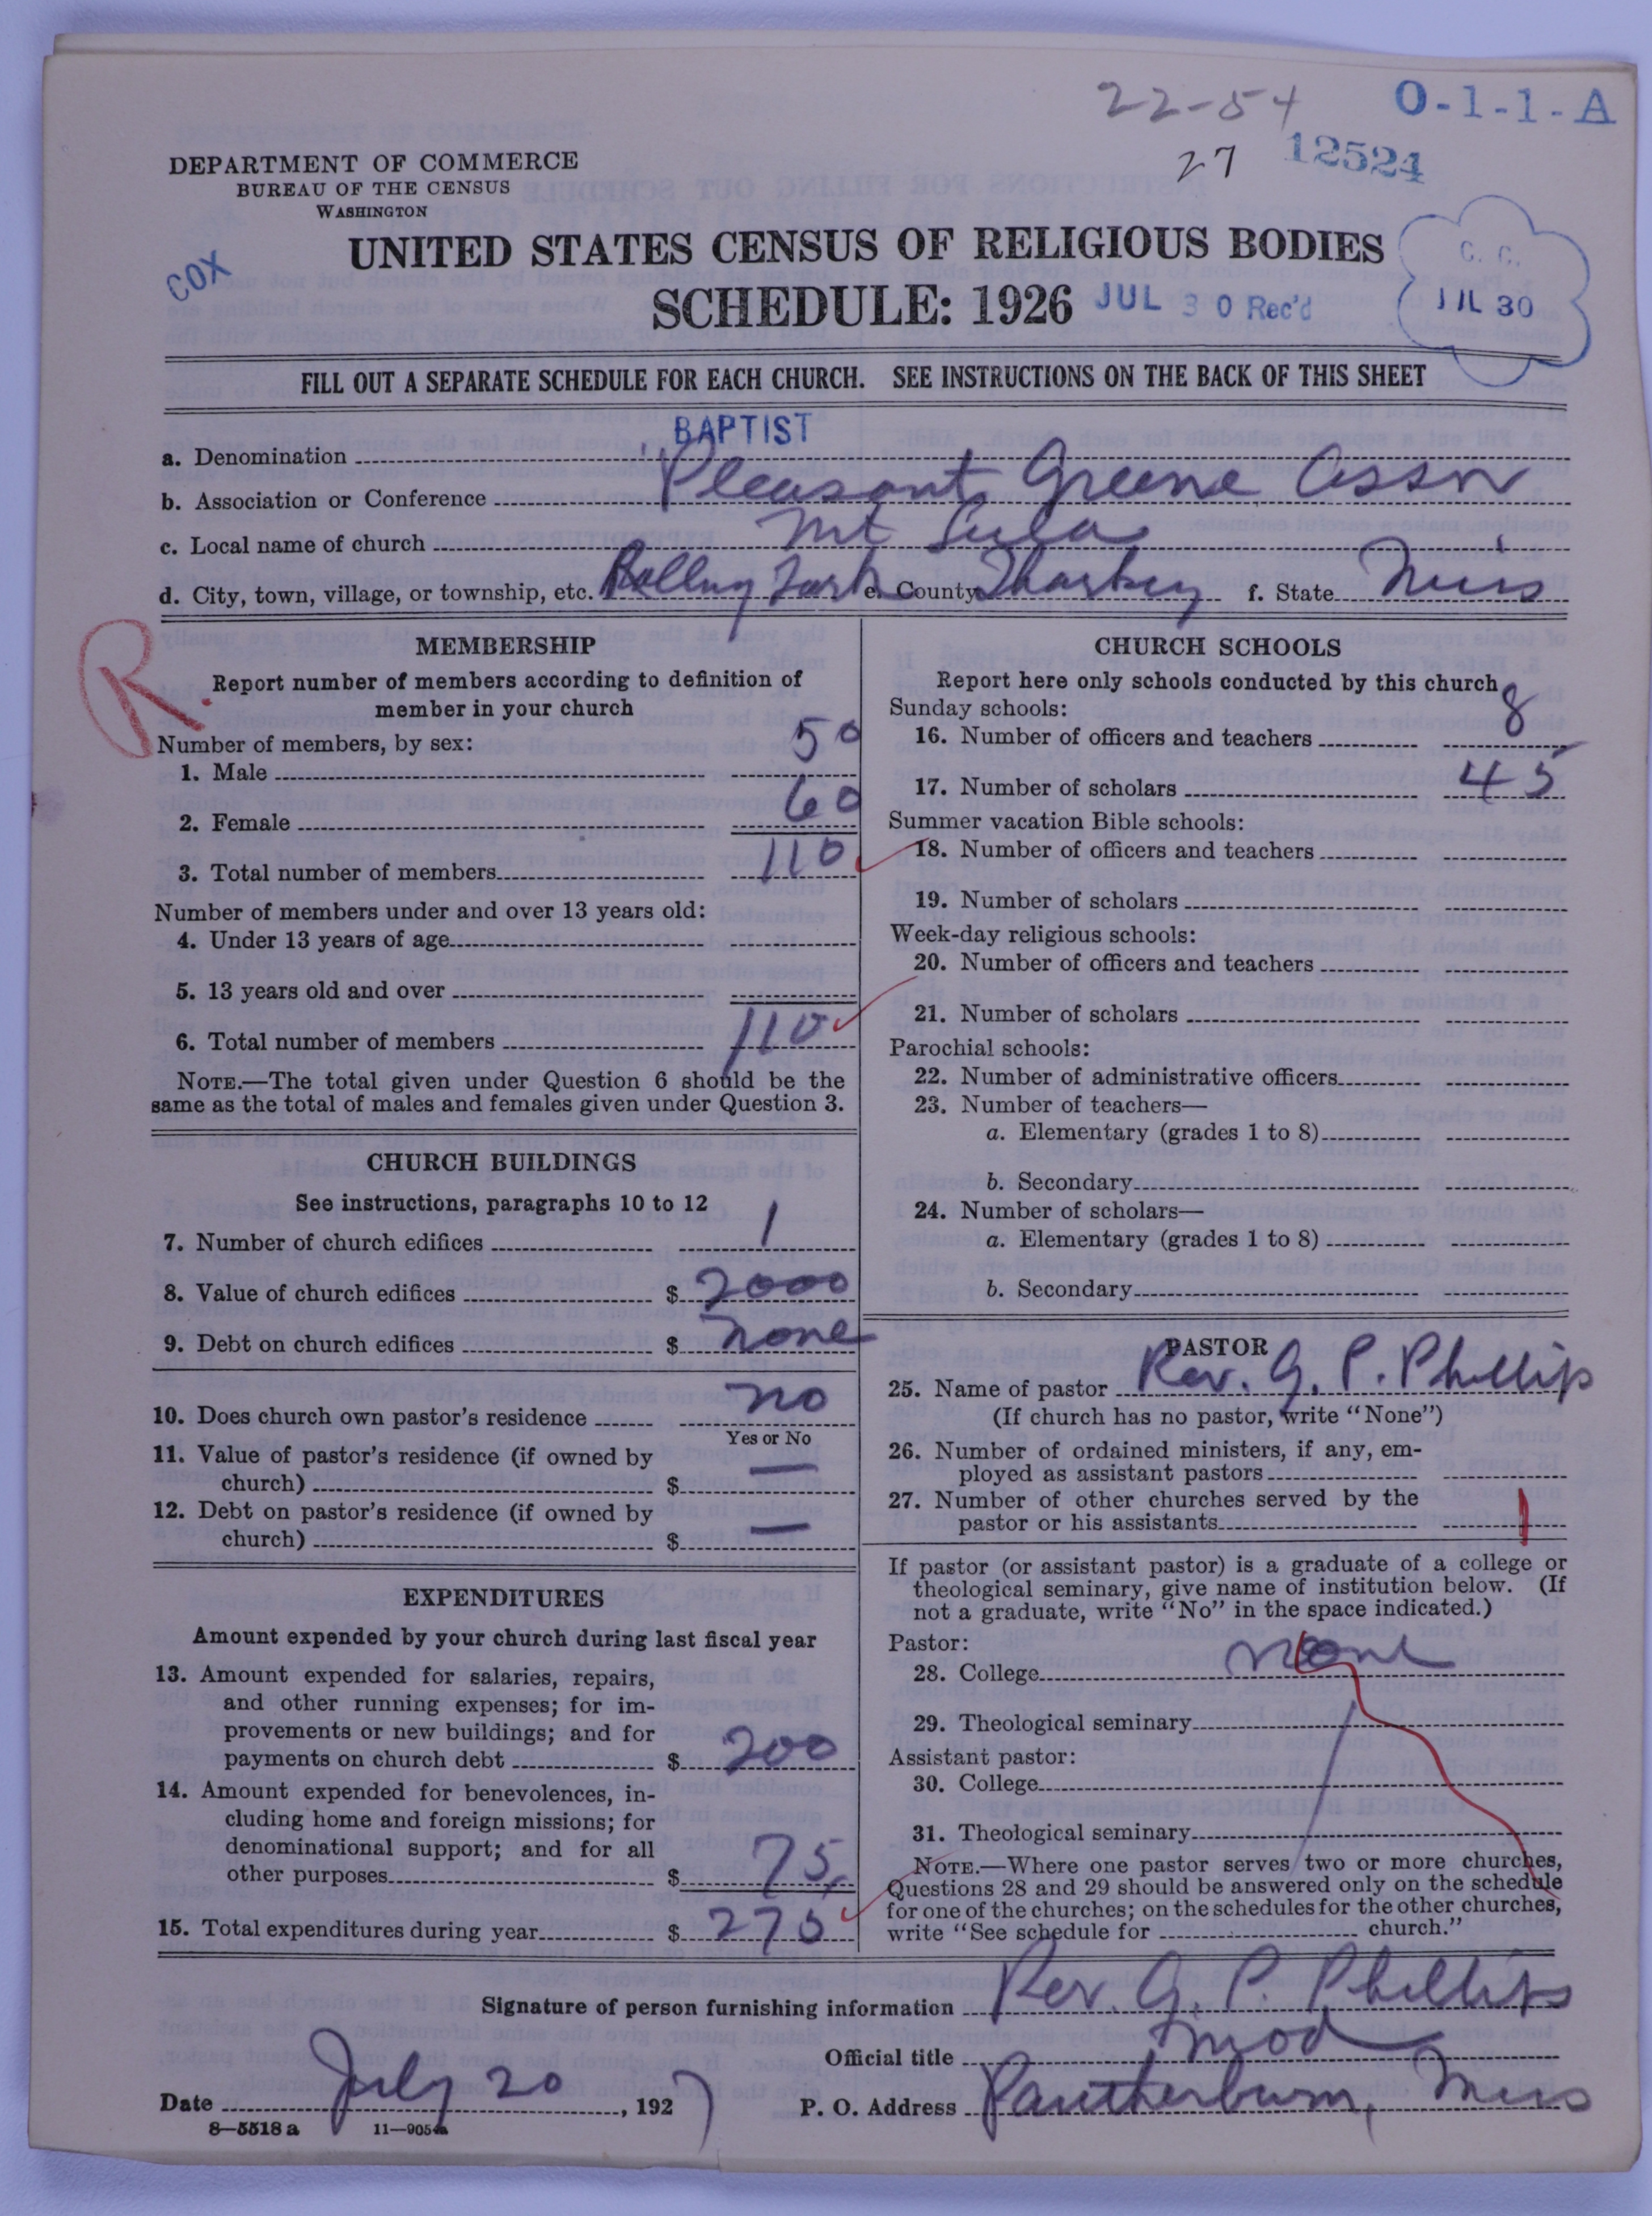 22-54 O-1-1-A
27 12524
DEPARTMENT OF COMMERCE
BUREAU OF THE CENSUS
WASHINGTON
COX
UNITED STATES CENSUS OF RELIGIOUS BODIES
SCHEDULE: 1926 JUL 30 Rec'd
C. C.
JUL 30
FILL OUT A SEPARATE SCHEDULE FOR EACH CHURCH. SEE INSTRUCTIONS ON THE BACK OF THIS SHEET
a. Denomination BAPTIST
b. Association or Conference Pleasant Greene Assn
c. Local name of church Mt Lula
d. City, town, village, or township, etc. Rolling Fork e. County Sharkey f. State Miss
R.
MEMBERSHIP
Report number of members according to definition of
member in your church
Number of members, by sex:
1. Male 50
2. Female 60
3. Total number of members 110
Number of members under and over 13 years old:
4. Under 13 years of age
5. 13 years old and over
6. Total number of members 110
NOTE.—The total given under Question 6 should be the
same as the total of males and females given under Question 3.
CHURCH BUILDINGS
See instructions, paragraphs 10 to 12
7. Number of church edifices 1
8. Value of church edifices $ 2000
9. Debt on church edifices $ none
10. Does church own pastor's residence no
Yes or No
11. Value of pastor's residence (if owned by
church) $ —
12. Debt on pastor's residence (if owned by
church) $ —
EXPENDITURES
Amount expended by your church during last fiscal year
13. Amount expended for salaries, repairs,
and other running expenses; for im-
provements or new buildings; and for
payments on church debt $ 200
14. Amount expended for benevolences, in-
cluding home and foreign missions; for
denominational support; and for all
other purposes $ 75
15. Total expenditures during year $ 275
CHURCH SCHOOLS
Report here only schools conducted by this church
Sunday schools:
16. Number of officers and teachers 8
17. Number of scholars 45
Summer vacation Bible schools:
18. Number of officers and teachers
19. Number of scholars
Week-day religious schools:
20. Number of officers and teachers
21. Number of scholars
Parochial schools:
22. Number of administrative officers
23. Number of teachers—
a. Elementary (grades 1 to 8)
b. Secondary
24. Number of scholars—
a. Elementary (grades 1 to 8)
b. Secondary
PASTOR
25. Name of pastor Rev. G. P. Phillip
(If church has no pastor, write "None")
26. Number of ordained ministers, if any, em-
ployed as assistant pastors
27. Number of other churches served by the
pastor or his assistants 1
If pastor (or assistant pastor) is a graduate of a college or
theological seminary, give name of institution below. (If
not a graduate, write "No" in the space indicated.)
Pastor:
28. College none
29. Theological seminary
Assistant pastor:
30. College
31. Theological seminary
NOTE.—Where one pastor serves two or more churches,
Questions 28 and 29 should be answered only on the schedule
for one of the churches; on the schedules for the other churches,
write "See schedule for church."
Signature of person furnishing information Rev. G. P. Phillips
Official title Mod
Date July 20, 1927 P. O. Address Pantherburn, Miss
8—5518 a 11—9054